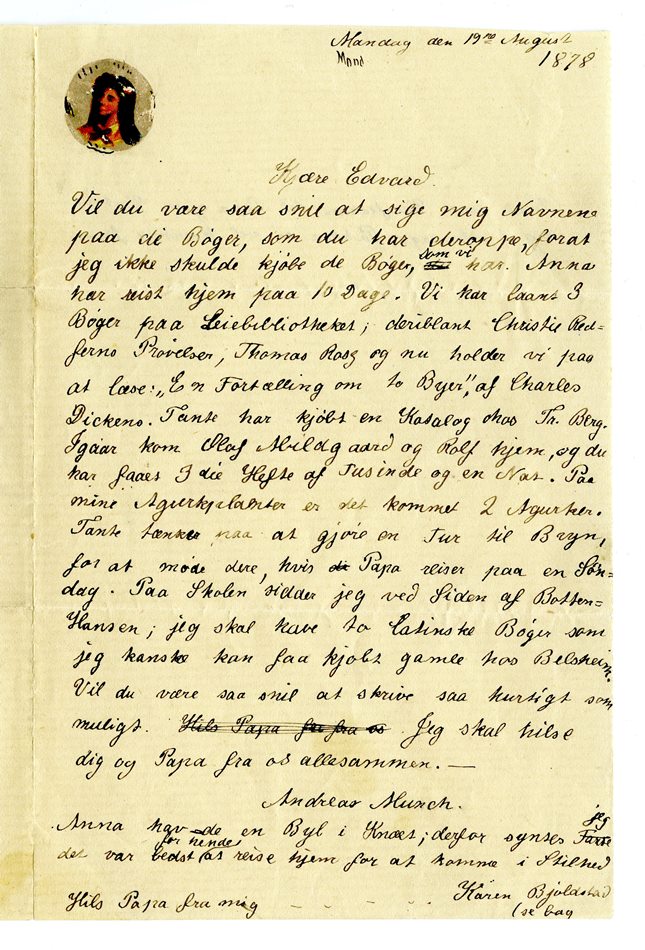 Mandag den 19re August
Mand
1878
Kjære Edvard.
Vil du være saa snil at sige mig Navnene
paa de Bøger, som du har deroppe, forat
jeg ikke skulde kjøbe de Bøger, som vi har. Anna
har reist hjem paa 10 Dage. Vi har laant 3
Bøger paa Leiebibliotheket; deriblant Christie Red-
ferns Prøvelser, Thomas Ross og nu holder vi paa
at læse: „En Fortælling om to Byer”, af Charles
Dickens. Tante har kjøbt en Katalog hos Fr. Berg.
Igaar kom Olaf Abildgaard og Rolf hjem, og du
har faaet 3die Hefte af Tusinde og en Nat. Paa
mine Agurkplanter er det kommet 2 Agurker.
Tante tænker paa at gjøre en Tur til Bryn,
for at møde dere, hvis di Papa reiser paa en Søn-
dag. Paa Skolen sidder jeg ved Siden af Botten-
Hansen; jeg skal have to Latinske Bøger som
jeg kanske kan faa kjøbt gamle hos Belsheim.
Vil du være saa snil at skrive saa hurtigt som
muligt. Hils Papa fra os Jeg skal hilse
dig og Papa fra os allesammen. —
Andreas Munch.
Anna havde en Byl i Knæet; derfor syntes jeg
det var bedst for hende at reise hjem for at komme i Stilhed
Karen Bjølstad
Hils Papa fra mig - - - - - (se bag